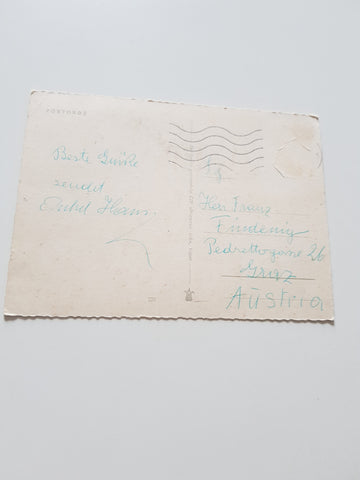 PORTOROŽ
Beste Grüße
sendet
Onkel Hans.
Herr Franz
Findenig
Pedrettogasse 26
Graz
Austria